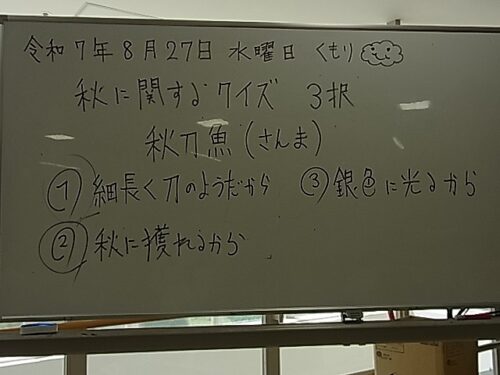 令和7年8月27日 水曜日 くもり
秋に関するクイズ 3択
秋刀魚(さんま)
① 細長く刀のようだから ③ 銀色に光るから
② 秋に獲れるから